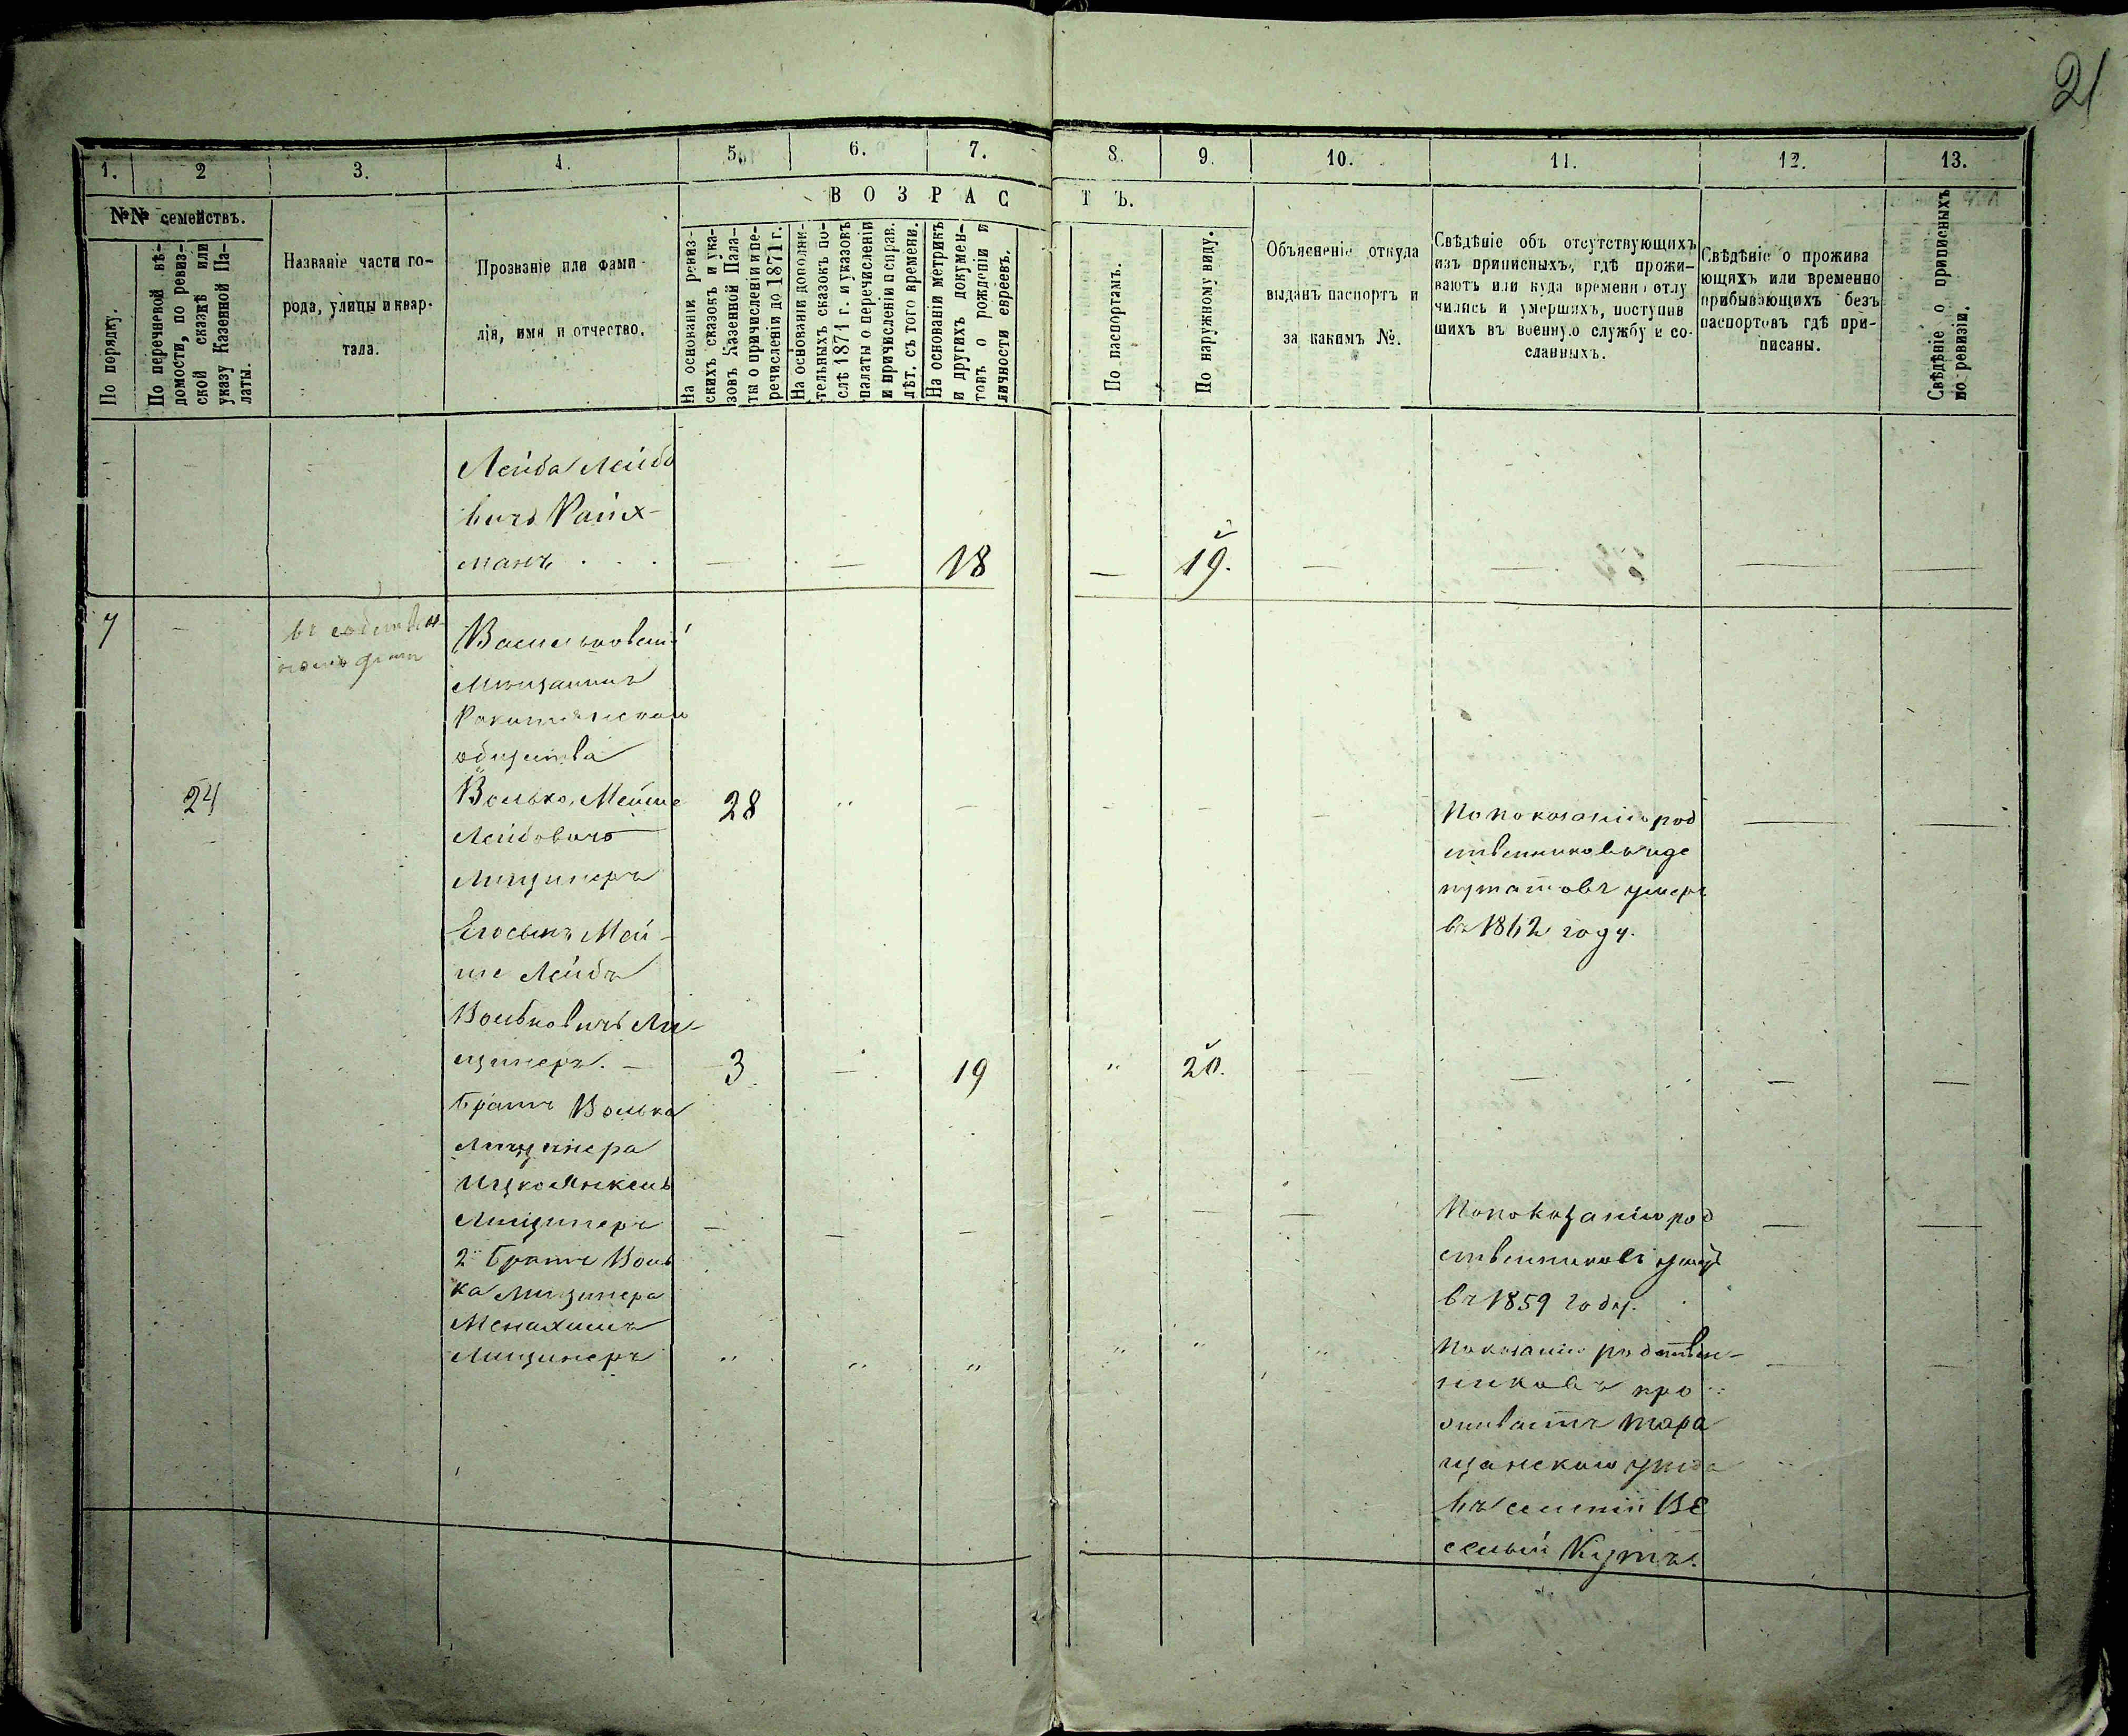 21
1. 2 3. 4. 5. 6. 7. 8. 9. 10. 11. 12. 13.
№№ семействъ.
По порядку.
По перечневой вѣ-
домости, по ревиз-
ской сказкѣ или
указу Казенной Па-
латы.
Названіе части го-
рода, улицы и квар-
тала.
Прозваніе или фами-
лія, имя и отчество.
ВОЗРАС
ТЪ.
На основаніи ревиз-
скихъ сказокъ и ука-
зовъ Казенной Пала-
ты о причисленіи и пе-
речисленіи до 1871 г.
На основаніи дополни-
тельныхъ сказокъ по-
слѣ 1871 г. и указовъ
палаты о перечисленіи
и причисленіи и справ.
лѣт. съ того времени.
На основаніи метрикъ
и другихъ докумен-
товъ о рожденіи и
личности евреевъ.
По паспортамъ.
По наружному виду.
Объясненіе откуда
выданъ паспортъ и
за какимъ №.
Свѣдѣніе объ отсутствующихъ
изъ приписныхъ, гдѣ прожи-
ваютъ или куда времени отлу
чились и умершихъ, поступив
шихъ въ военную службу и со-
сланныхъ.
Свѣдѣніе о прожива
ющихъ или временно
прибывающихъ безъ
паспортовъ гдѣ при-
писаны.
Свѣдѣніе о приписныхъ
по ревизіи.
Лейба Лейбо
вичъ Райх-
манъ . . . — — 18 — 19. — — — —
7 —
Васильковскій
Мѣщанинъ
Рокитянскаго
общества
24 Волько Мейше 28 " — — — —
Лейбовичъ
Лищинеръ
По показанію род
ственниковъ и де
путатовъ умеръ
въ 1862 году.
Его сынъ Мей-
ше Лейбъ
Вольковичъ Ли-
щинеръ. — 3 — 19 " 20. — — — —
Братъ Волька
Лищинера
Ицко Янкель
Лищинеръ — — — — — —
По показанію род
ственниковъ умеръ
въ 1859 году.
2й Братъ Воль
ка Лищинера
Менахимъ
Лищинеръ " " " " " "
Показанію родствен-
никовъ про
живаетъ Тара
щанскаго уѣзда
въ селеніи Ве
селый Кутъ.